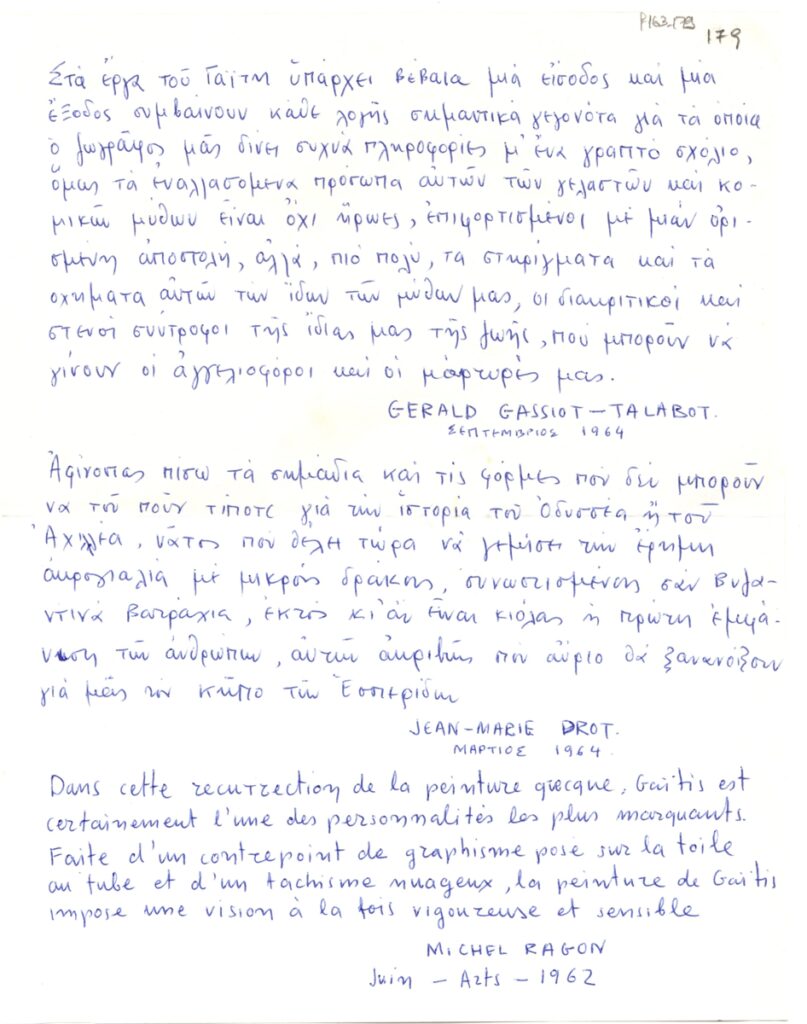 P163.179
179
Στὰ ἔργα τοῦ Γαΐτη ὑπάρχει βέβαια μιὰ εἴσοδος καὶ μία
ἔξοδος συμβαίνουν κάθε λογῆς σημαντικὰ γεγονότα γιὰ τὰ ὁποῖα
ὁ ζωγράφος μᾶς δίνει συχνὰ πληροφορίες μ' ἕνα γραπτὸ σχόλιο,
ὅμως τὰ ἐναλλασόμενα πρόσωπα αὐτῶν τῶν γελαστῶν καὶ κο-
μικῶν μύθων εἶναι ὄχι ἥρωες, ἐπιφορτισμένοι μὲ μιὰν ὁρι-
σμένη ἀποστολή, ἀλλά, πιὸ πολύ, τα στηρίγματα καὶ τὰ
οχήματα αὐτῶν τῶν ἴδιων τῶν μύθων μας, οι διακριτικοὶ καὶ
στενοὶ σύντροφοι τῆς ἴδιας μας τῆς ζωῆς, ποὺ μποροῦν νὰ
γίνουν οἱ ἀγγελιοφόροι καὶ οἱ μάρτυρές μας.
GERALD GASSIOT-TALABOT.
ΣΕΠΤΕΜΒΡΙΟΣ 1964
Ἀφίνοντας πίσω τὰ σημάδια καὶ τὶς φόρμες ποὺ δὲν μποροῦν
νὰ τοῦ ποῦν τίποτε γιὰ τὴν ἱστορία τοῦ Ὀδυσσέα ἢ τοῦ
Ἀχιλλέα, νάτος ποὺ θέλει τώρα νὰ γεμίσει τὴν ἔρημη
ἀκρογιαλιὰ μὲ μικροὺς δράκους, συνωστισμένους σὰν Βυζα-
ντινὰ Βατράχια, ἐκτὸς κι' ἂν εἶναι κιόλας ἡ πρώτη ἐμφά-
νιση τῶν ἀνθρώπων, αὐτῶν ἀκριβῶς ποὺ αὔριο θὰ ξανανοίξουν
γιὰ μᾶς τὸν κῆπο τῶν Ἑσπερίδων
JEAN-MARIE DROT.
ΜΑΡΤΙΟΣ 1964.
Dans cette recurrection de la peinture grecque, Gaïtis est
certainement l'une des personnalités les plus marquants.
Faite d'un contrepoint de graphisme posé sur la toile
au tube et d'un tachisme nuageux, la peinture de Gaïtis
impose une vision à la fois vigoureuse et sensible
MICHEL RAGON
Juin - Arts - 1962